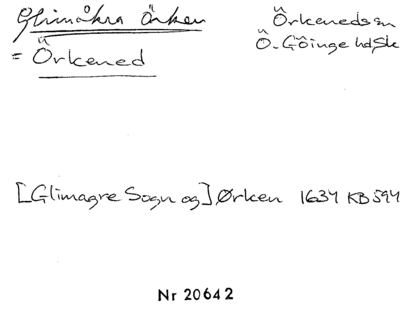 Glimåkra Örken
Örkeneds sn
= Örkened
Ö. Göinge hd Sk
[Glimagre Sogn og] Ørken 1634 KB 594
Nr 20642